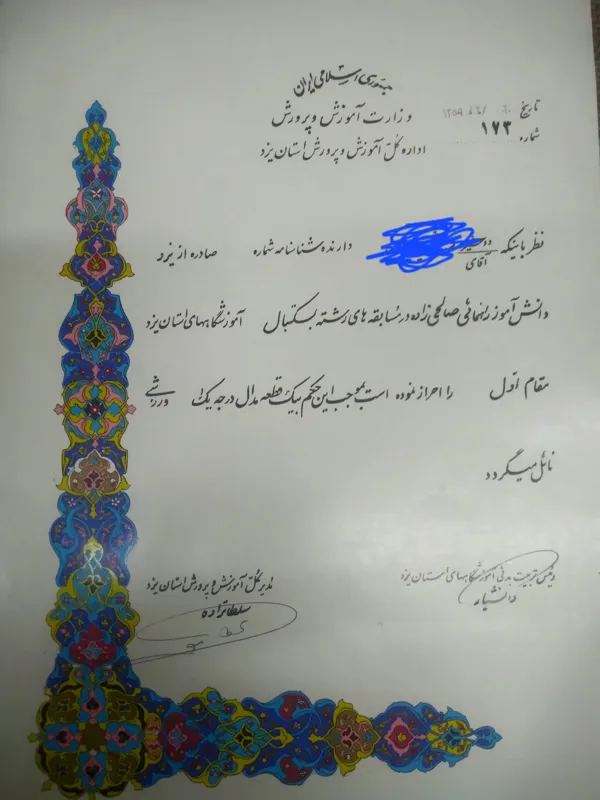 جمهوری اسلامی ایران
وزارت آموزش و پرورش
اداره کل آموزش و پرورش استان یزد
تاریخ
شماره ۱۷۳
نظر باینکه دوشیزه آقای دارنده شناسنامه شماره صادره از یزد
دانش آموز راهنمائی صالحی زاده در مسابقه های رشته بسکتبال آموزشگاههای استان یزد
مقام اول را احراز نموده است بموجب این حکم بیک قطعه مدال درجه یک ورزشی
نائل میگردد
رئیس تربیت بدنی آموزشگاههای استان یزد
دانشیار
مدیر کل آموزش و پرورش استان یزد
سلطانزاده